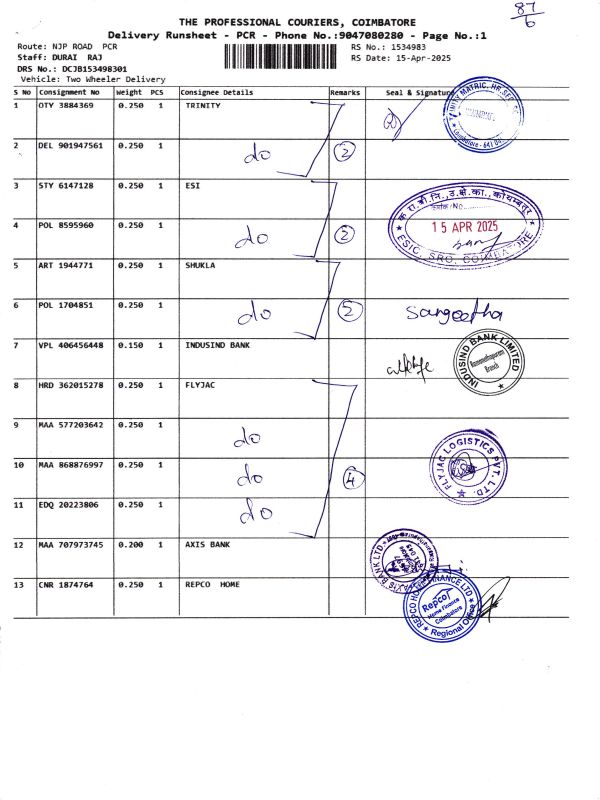 87/6
THE PROFESSIONAL COURIERS, COIMBATORE
Delivery Runsheet - PCR - Phone No.:9047080280 - Page No.:1
Route: NJP ROAD PCR RS No.: 1534983
Staff: DURAI RAJ RS Date: 15-Apr-2025
DRS No.: DCJB153498301
Vehicle: Two Wheeler Delivery
S No Consignment No Weight PCS Consignee Details Remarks Seal & Signature
1 OTY 3884369 0.250 1 TRINITY
2 DEL 901947561 0.250 1 do 2
3 STY 6147128 0.250 1 ESI
4 POL 8595960 0.250 1 do 2
15 APR 2025
ESIC, SRO, COIMBATORE
5 ART 1944771 0.250 1 SHUKLA
6 POL 1704851 0.250 1 do 2 Sangeetha
7 VPL 406456448 0.150 1 INDUSIND BANK
INDUSIND BANK LIMITED
Branch
8 HRD 362015278 0.250 1 FLYJAC
9 MAA 577203642 0.250 1 do
10 MAA 868876997 0.250 1 do 4
FLYJAC LOGISTICS PVT. LTD.
11 EDQ 20223806 0.250 1 do
12 MAA 707973745 0.200 1 AXIS BANK
13 CNR 1874764 0.250 1 REPCO HOME
REPCO HOME FINANCE LTD
Repco
Home Finance
Coimbatore
Regional Office